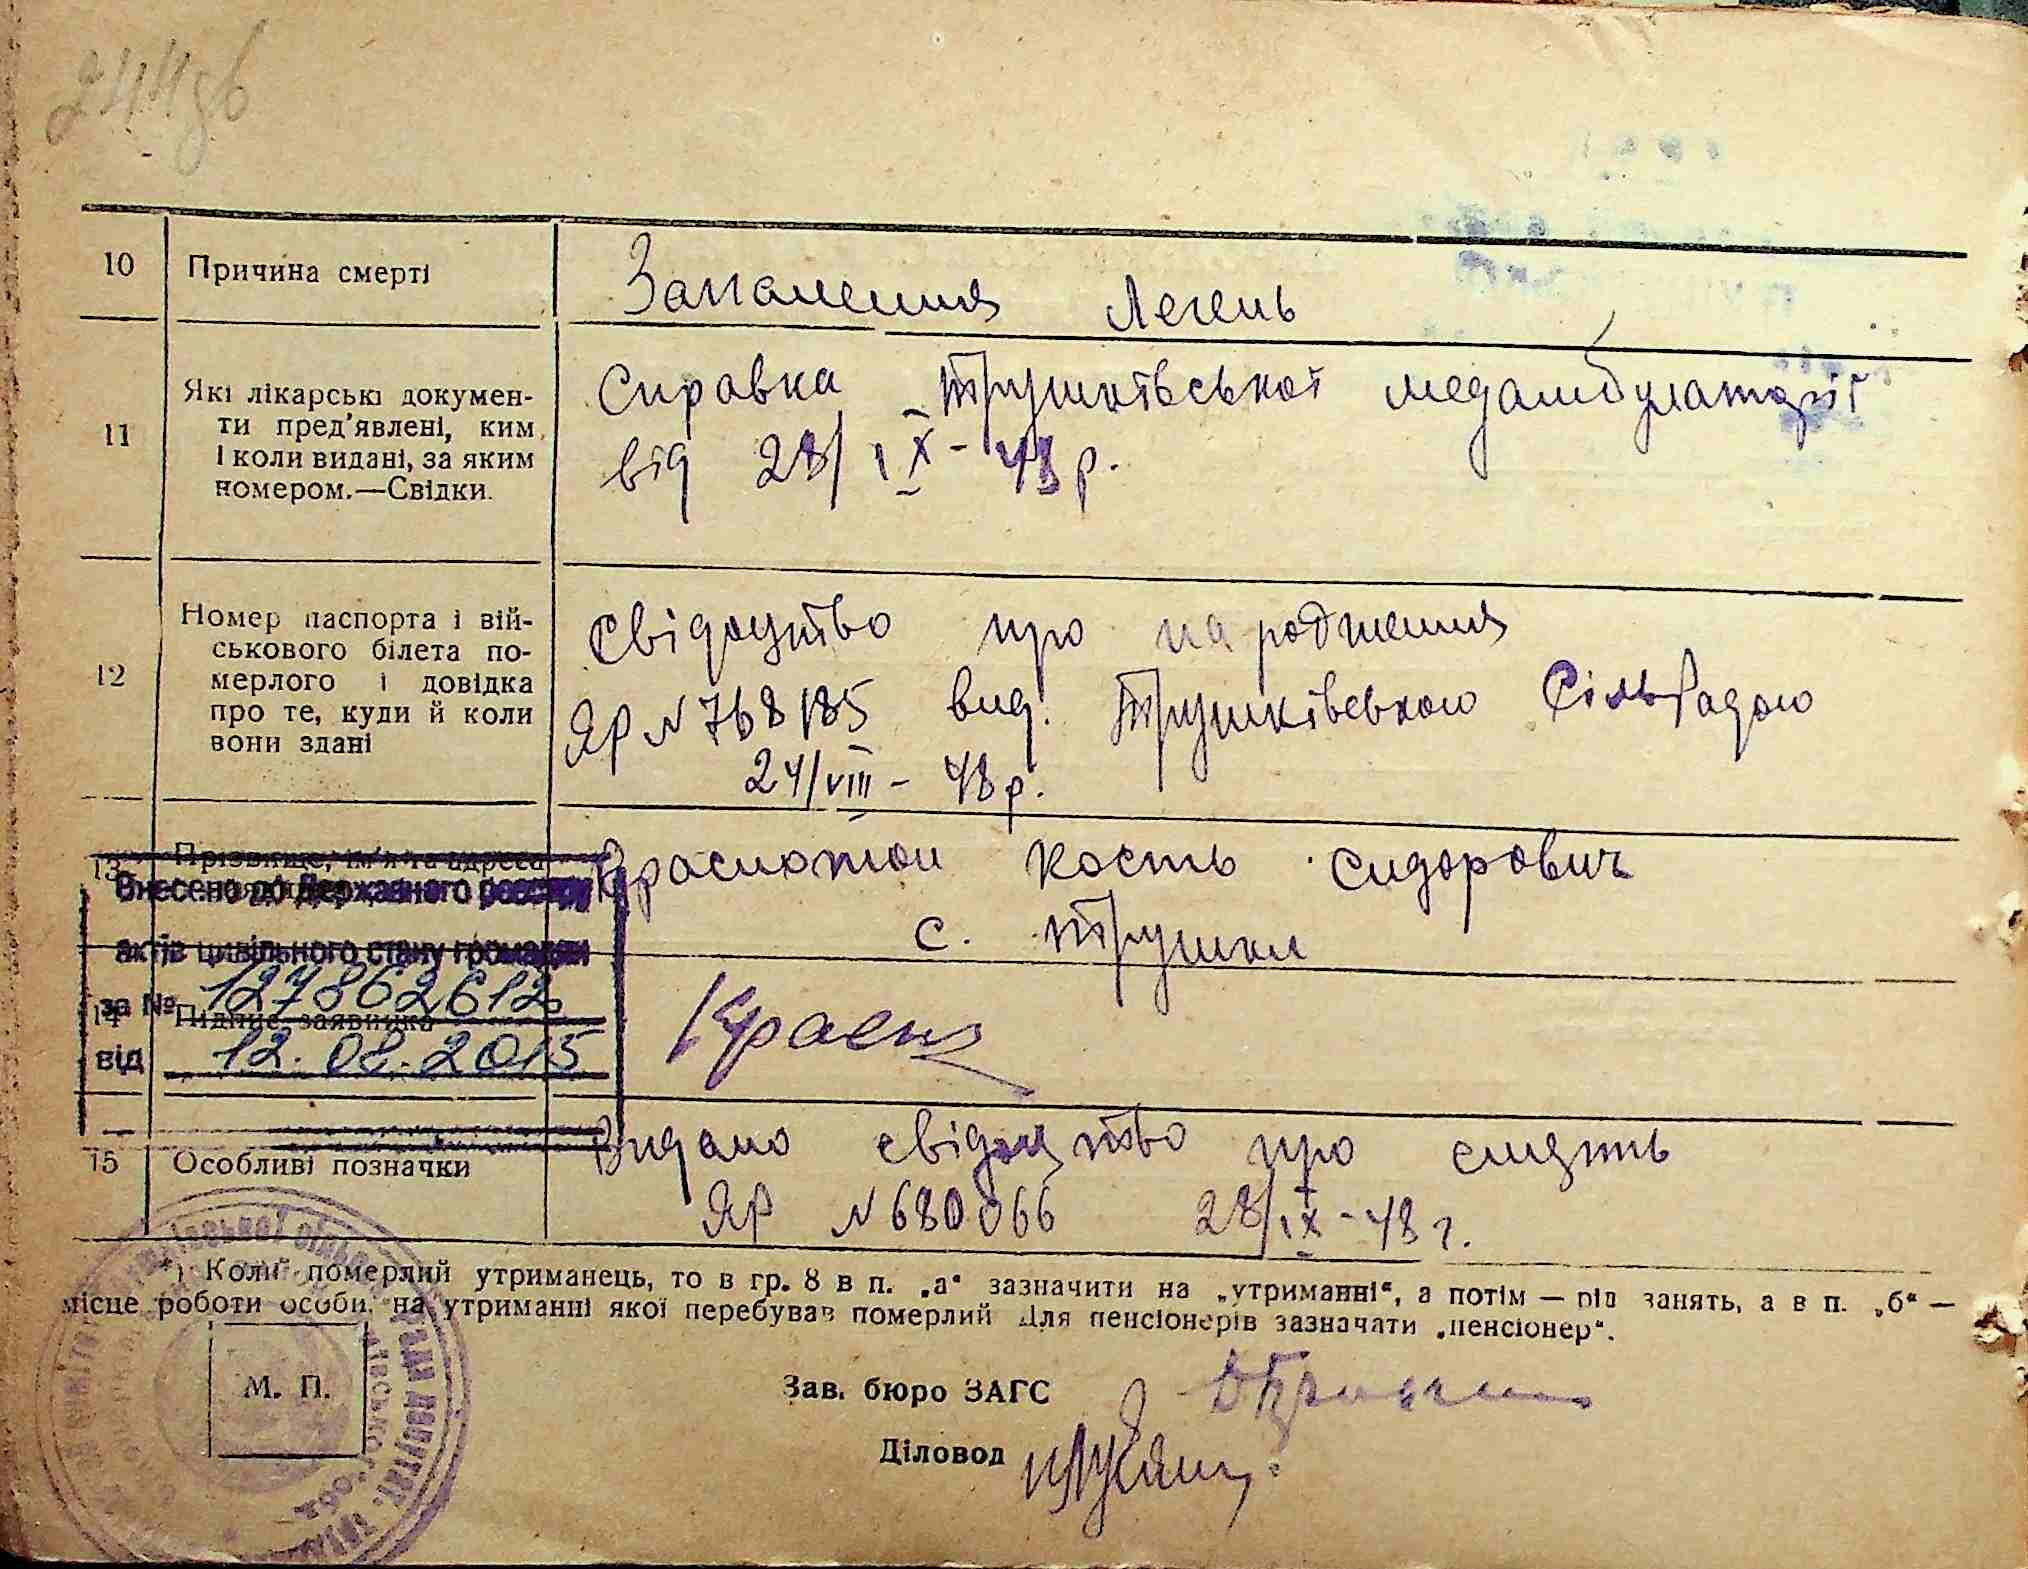 244зв
10 Причина смерті Запалення легень
11 Які лікарські докумен-
ти пред'явлені, ким
і коли видані, за яким
номером.—Свідки.
Справка Трушківської медамбулаторії
від 28/IX-48 р.
12 Номер паспорта і вій-
ськового білета по-
мерлого і довідка
про те, куди й коли
вони здані
Свідоцтво про народження
ЯР №768185 вид. Трушківською Сільрадою
24/VIII - 48 р.
13 Прізвище, ім'я та адреса
Кость Сидорович
с. Трушки
Внесено до Державного реєстру
актів цивільного стану громадян
за № 127862612
від 12.08.2015
14 Підпис заявника
15 Особливі позначки
Видано свідоцтво про смерть
ЯР №680066 28/IX-48 г.
*) Коли померлий утриманець, то в гр. 8 в п. „а“ зазначити на „утриманні“, а потім — рід занять, а в п. „б“ —
місце роботи особи, на утриманні якої перебував померлий Для пенсіонерів зазначати „пенсіонер“.
М. П.
Зав. бюро ЗАГС
Діловод